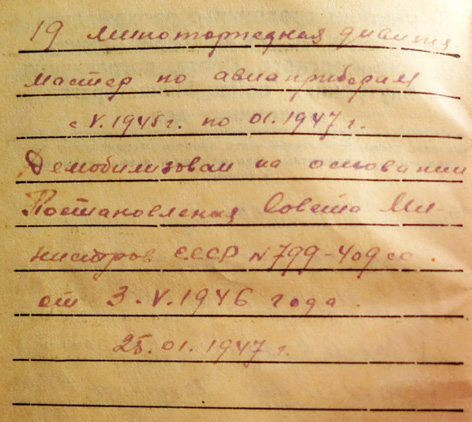 19 минoторпедная дивизия
мастер по авиаприборам
с V.1945 г. по 01.1947 г.
Демобилизован на основании
Постановления Совета Ми-
нистров СССР N 799-409 сс.
от 3.V.1946 года.
25.01.1947 г.